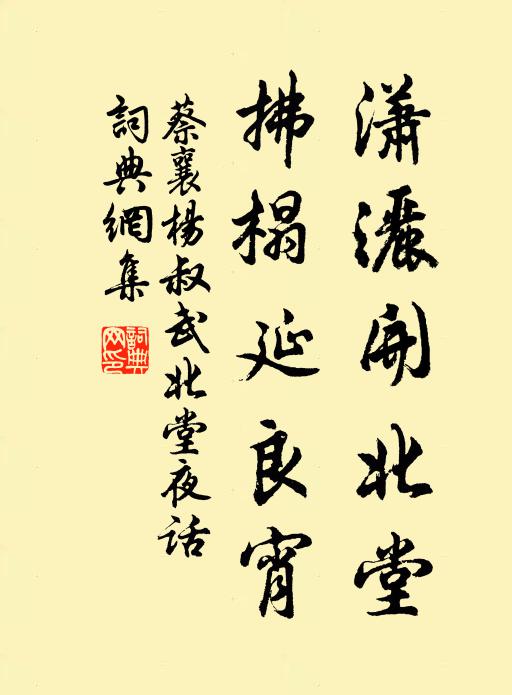 瀟灑開北堂
拂榻延良宵
蔡襄楊叔武北堂夜话
詞典網集
詞典網印